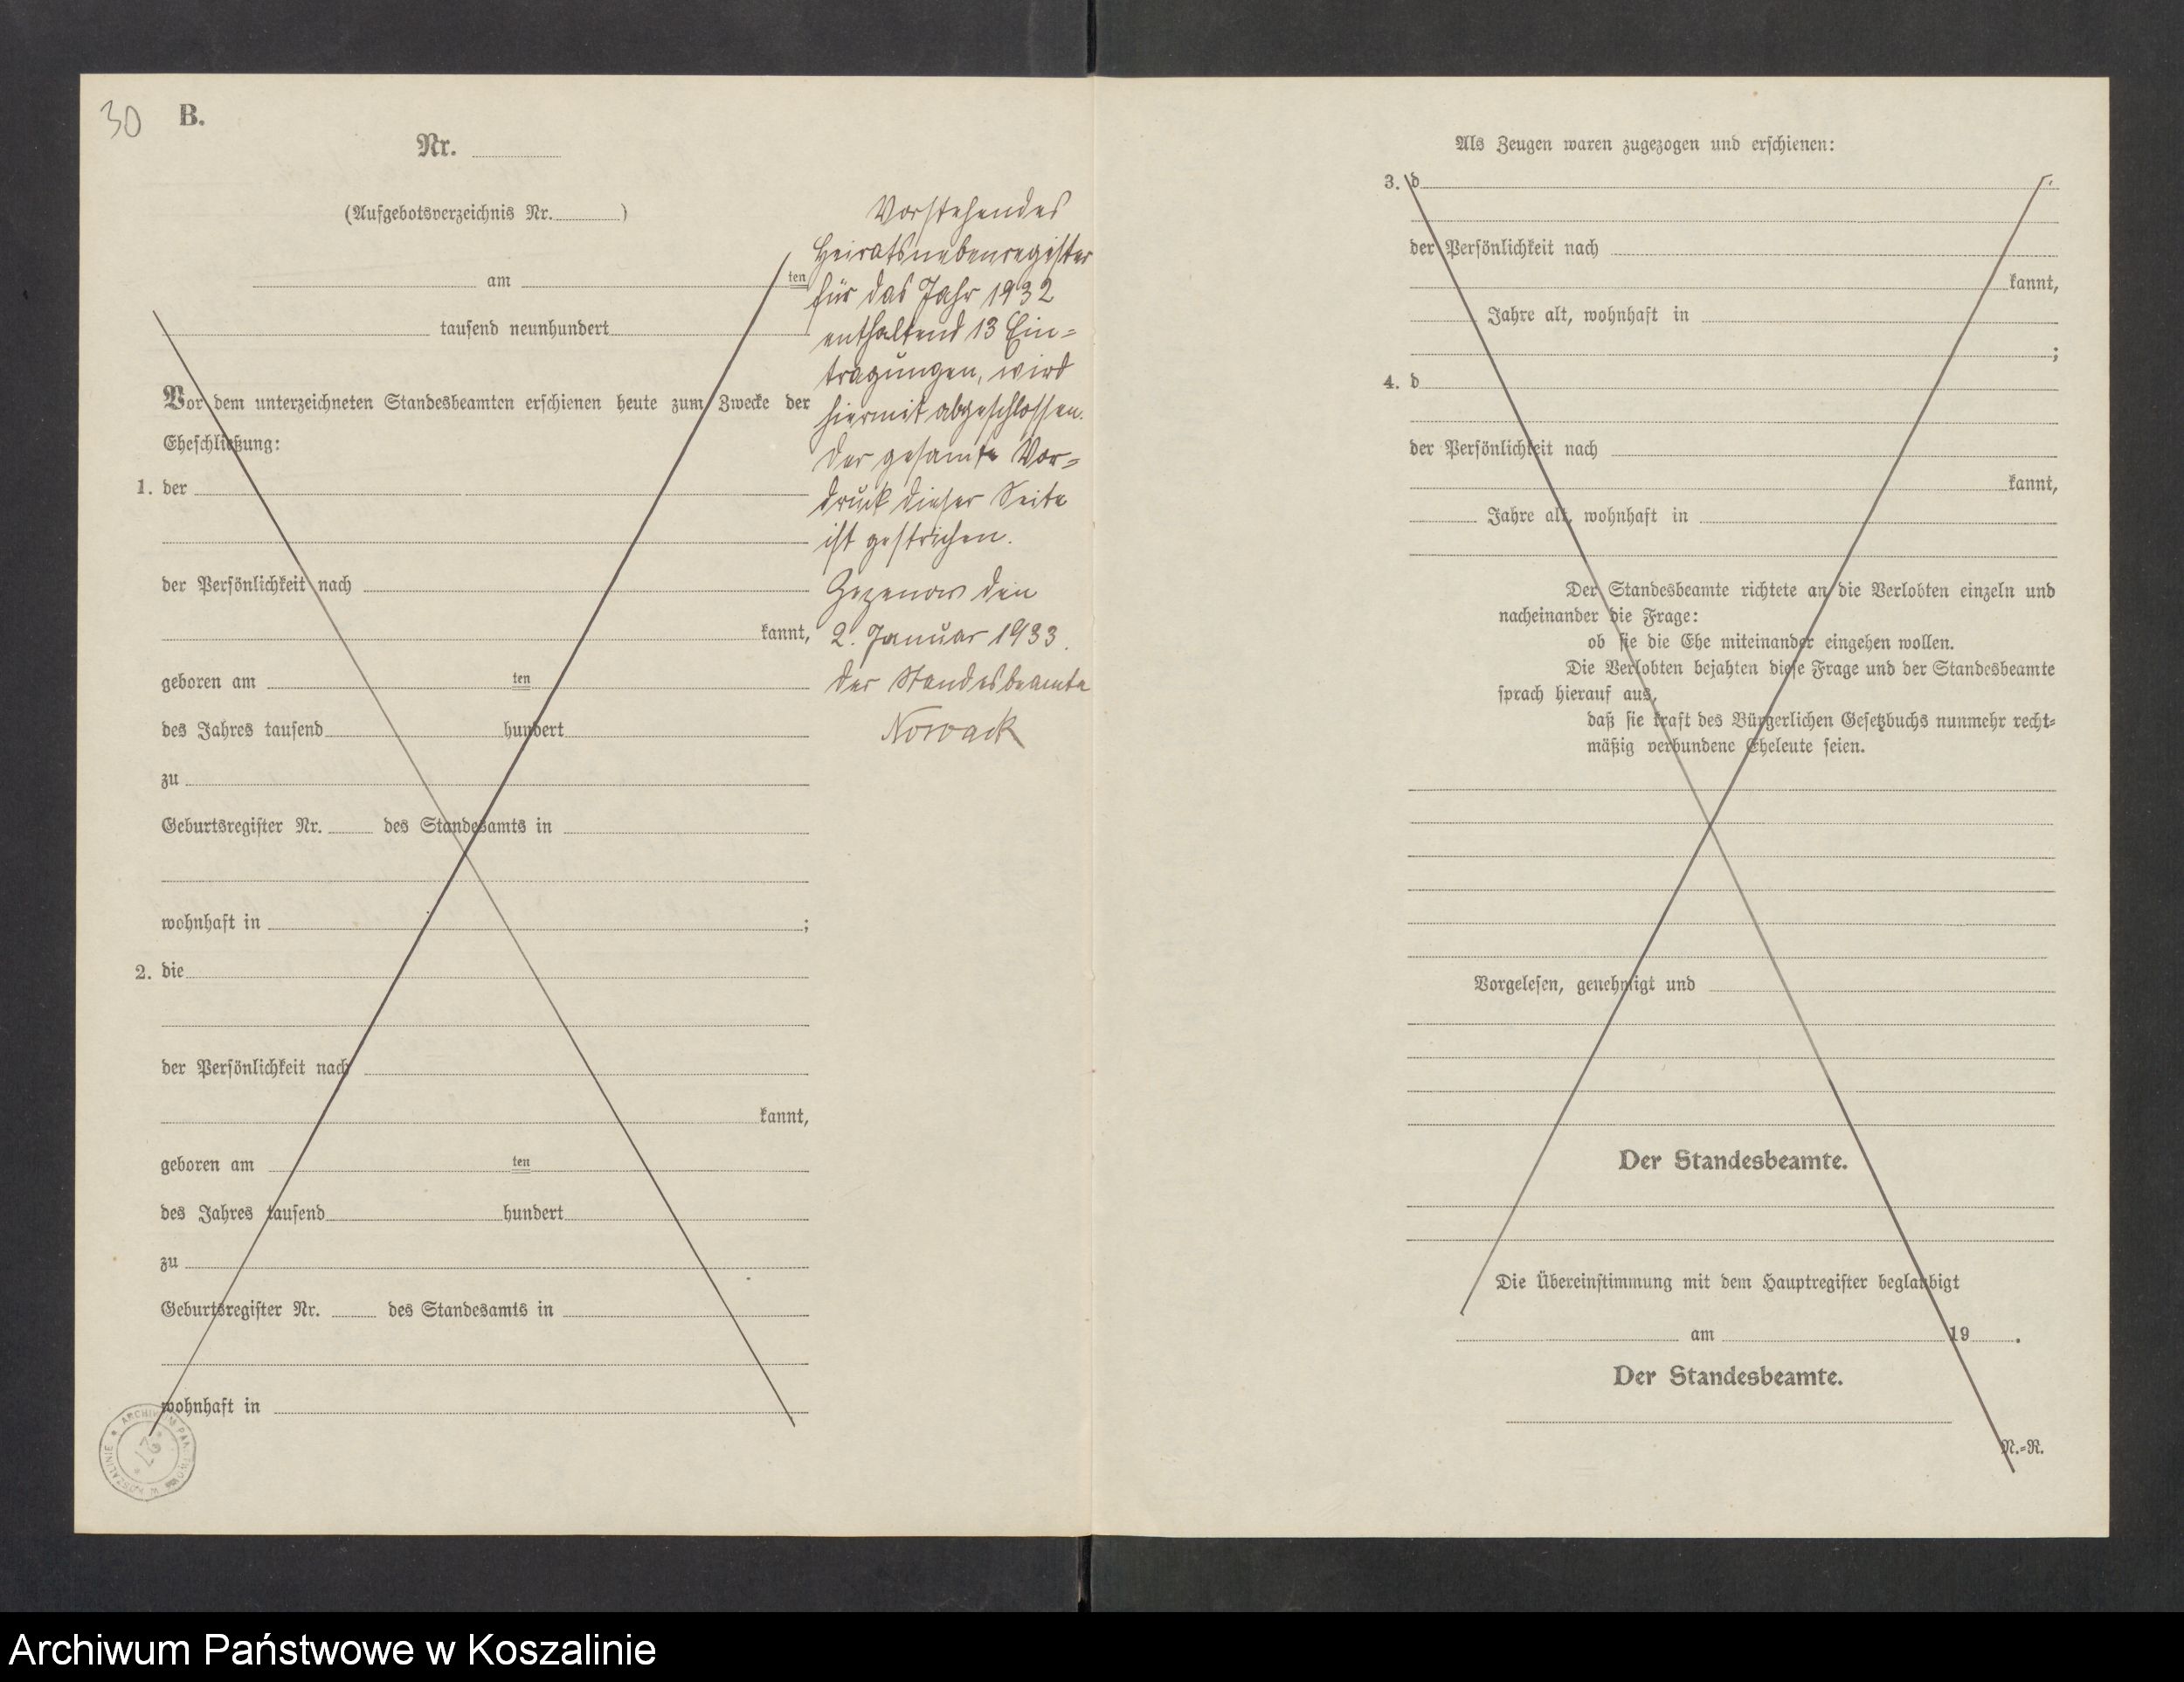 30 B.
Nr.
(Aufgebotsverzeichnis Nr. )
am ten
tausend neunhundert
Vor dem unterzeichneten Standesbeamten erschienen heute zum Zwecke der
Eheschließung:
1. der
der Persönlichkeit nach
kannt,
geboren am ten
des Jahres tausend hundert
zu
Geburtsregister Nr. des Standesamts in
wohnhaft in ;
2. die
der Persönlichkeit nach
kannt,
geboren am ten
des Jahres tausend hundert
zu
Geburtsregister Nr. des Standesamts in
wohnhaft in
Vorstehendes
Heiratsnebenregister
für das Jahr 1932
enthaltend 13 Ein=
tragungen, wird
hiermit abgeschlossen.
Der gesamte Vor=
druck dieser Seite
ist gestrichen.
Gezenow den
2. Januar 1933.
Der Standesbeamte
Nowack
Als Zeugen waren zugezogen und erschienen:
3. d
der Persönlichkeit nach
kannt,
Jahre alt, wohnhaft in
;
4. d
der Persönlichkeit nach
kannt,
Jahre alt, wohnhaft in
Der Standesbeamte richtete an die Verlobten einzeln und
nacheinander die Frage:
ob sie die Ehe miteinander eingehen wollen.
Die Verlobten bejahten diese Frage und der Standesbeamte
sprach hierauf aus,
daß sie kraft des Bürgerlichen Gesetzbuchs nunmehr recht=
mäßig verbundene Eheleute seien.
Vorgelesen, genehmigt und
Der Standesbeamte.
Die Übereinstimmung mit dem Hauptregister beglaubigt
am 19 .
Der Standesbeamte.
N.=R.
ARCHIWUM PAŃSTWOWE W KOSZALINIE
Archiwum Państwowe w Koszalinie